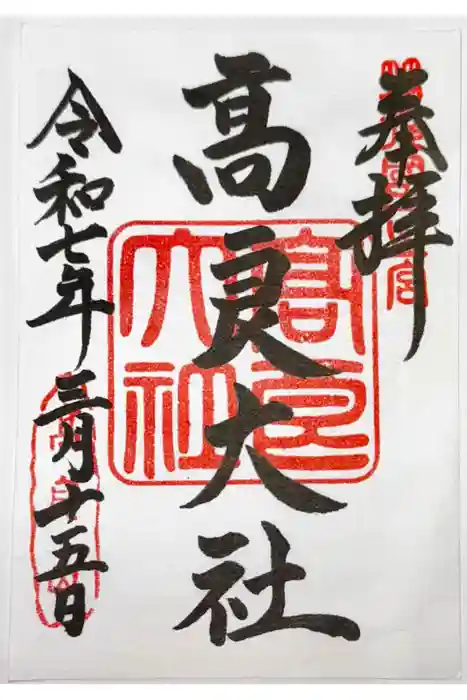 奉拝
高良大社
令和七年三月十五日
高良
大社